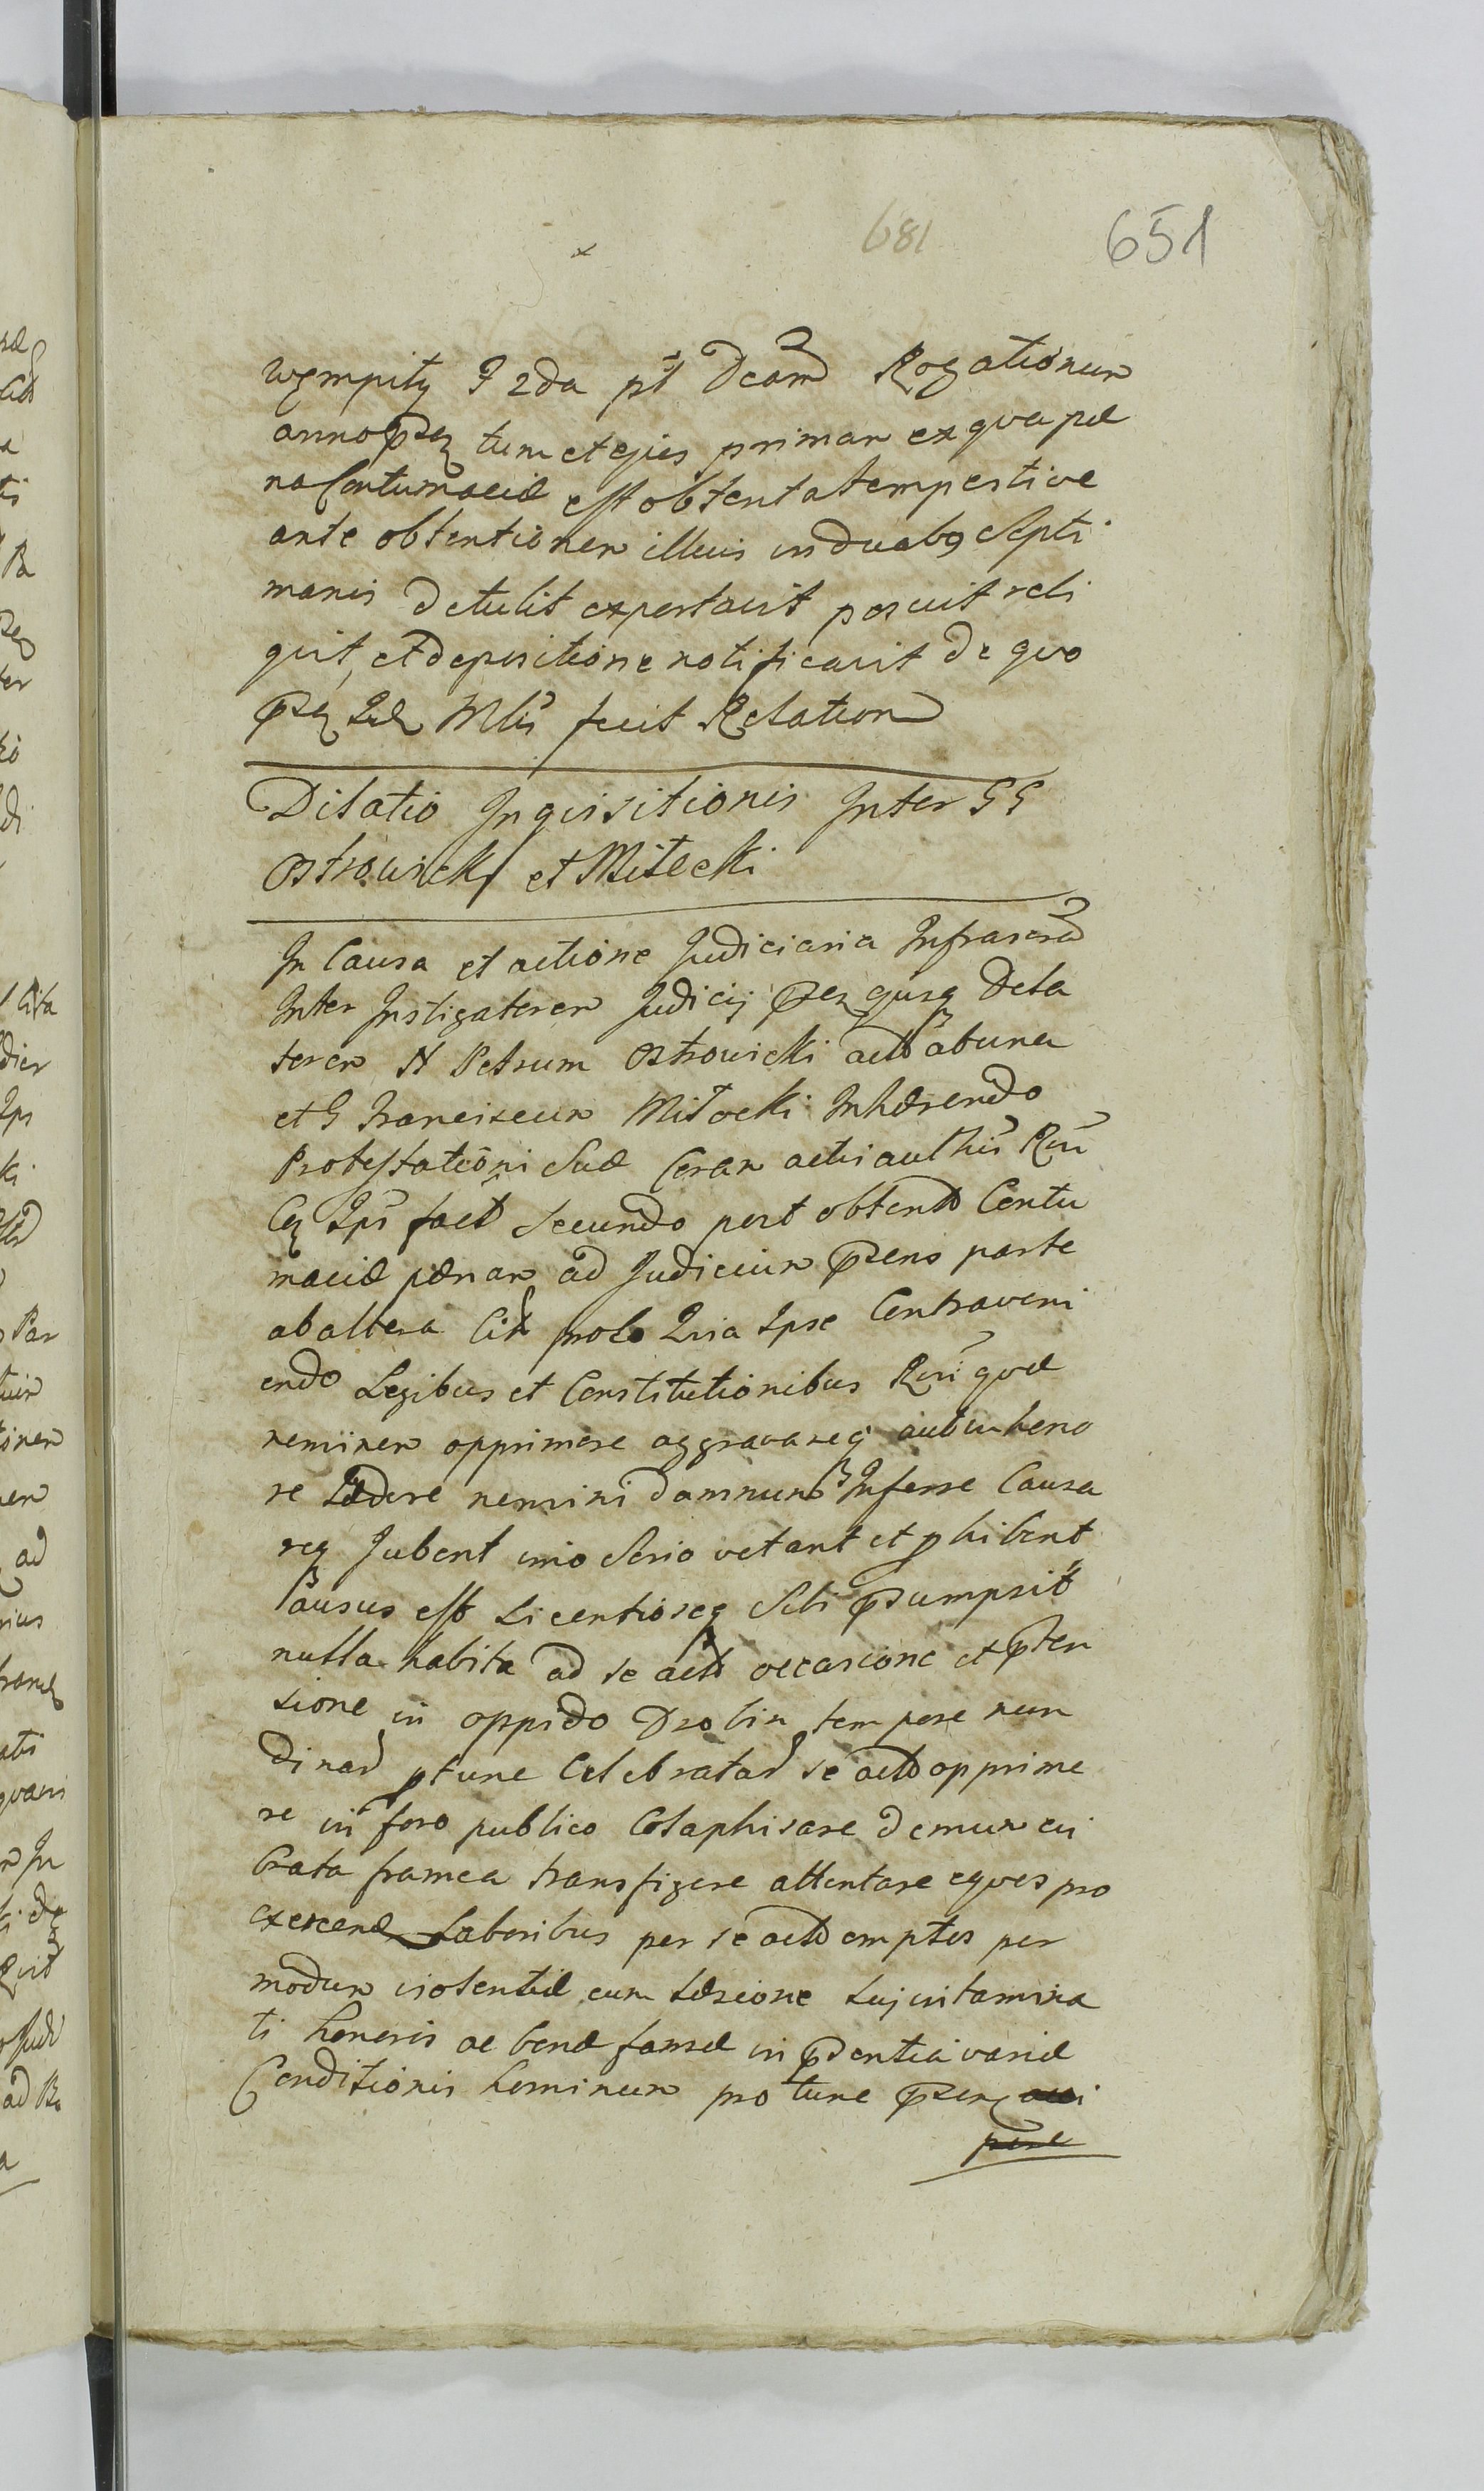 681 651
Wępnity F 2da pt Dcam Rogationum
anno prz tum et ejus primam ex qva pæ
na Contumaciæ est obtenta tempestive
ante obtentionem illius in duabg Septi
manis detulit exportavit posuit reli
qvit, et depositione notificavit de qvo
Mlis fecit Relation
Dilatio Inqvisitionis Inter GG
Ostrowicki et Milecki
In Causa et actione Judiciaria Infrascra
Inter Instigatorem Judicij prz ejusq Dela
torem N Petrum Ostrowicki act ab una
et G Franciscum Milocki Inhærendo
Protestationi Suæ Coram actis authis Rni
Cą Ips fact Secundo post obtent Contu
maciæ pænam ad Judicium prens parte
ab altera Cit prolo Qvia Ipse Contraveni
endo Legibus et Constitutionibus Rni qvæ
neminem opprimere aggravareq aut in hono
re Lædere nemini damnum Inferre Causa
req Jubent imo Serio vetant et phibent
ausus est Licentioseq Sibi præsumpsit
nulla habita ad se act occasione et pten
sione in oppido Drobin tempore nun
dinar ptunc Celebratar se act opprime
re in foro publico Colaphisare demum evi
brata framea transfigere attentare eqves pro
exercend Laboribus per se act emptos per
modum violentiæ cum Læsione Sui intamina
ti honoris ac benæ famæ in pdentia variæ
Conditionis hominum pro tunc